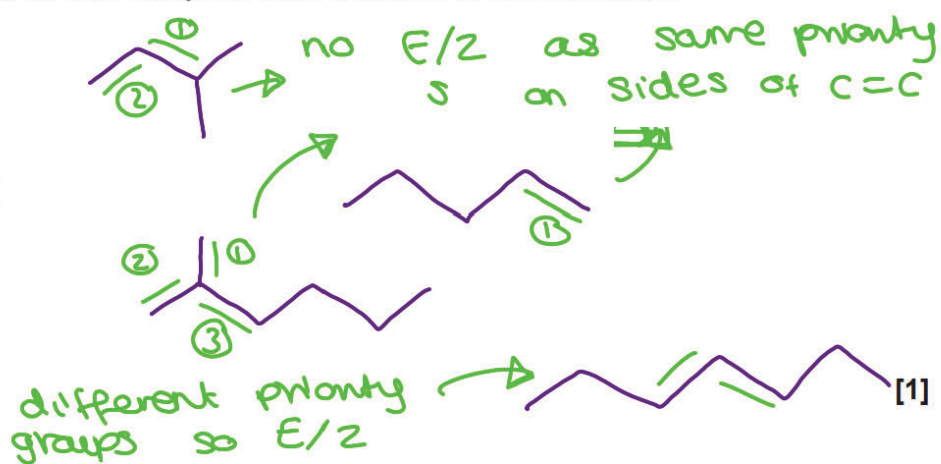 ①
no E/Z as same priority
②
s on sides of C=C
①
② ①
③
different priority
groups so E/Z
[1]